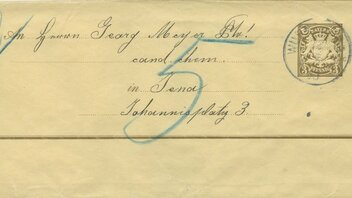 An Herrn Georg Meyer
cand chem.
in Jena
Johannisplatz 3
5
BAYERN
3 3
PFENNIG